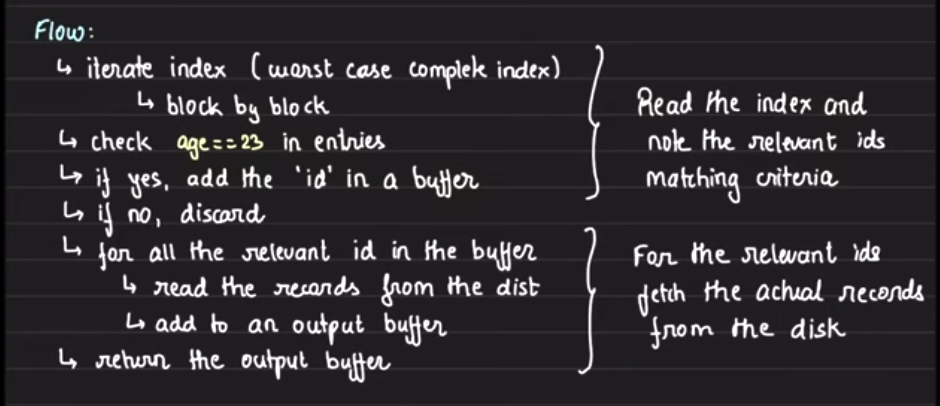 Flow:
↳ iterate index (worst case complek index)
↳ block by block
↳ check age==23 in entries
↳ if yes, add the 'id' in a buffer
↳ if no, discard
Read the index and
note the relevant ids
matching criteria
↳ for all the relevant id in the buffer
↳ read the records from the dist
↳ add to an output buffer
↳ return the output buffer
For the relevant ids
fetch the actual records
from the disk